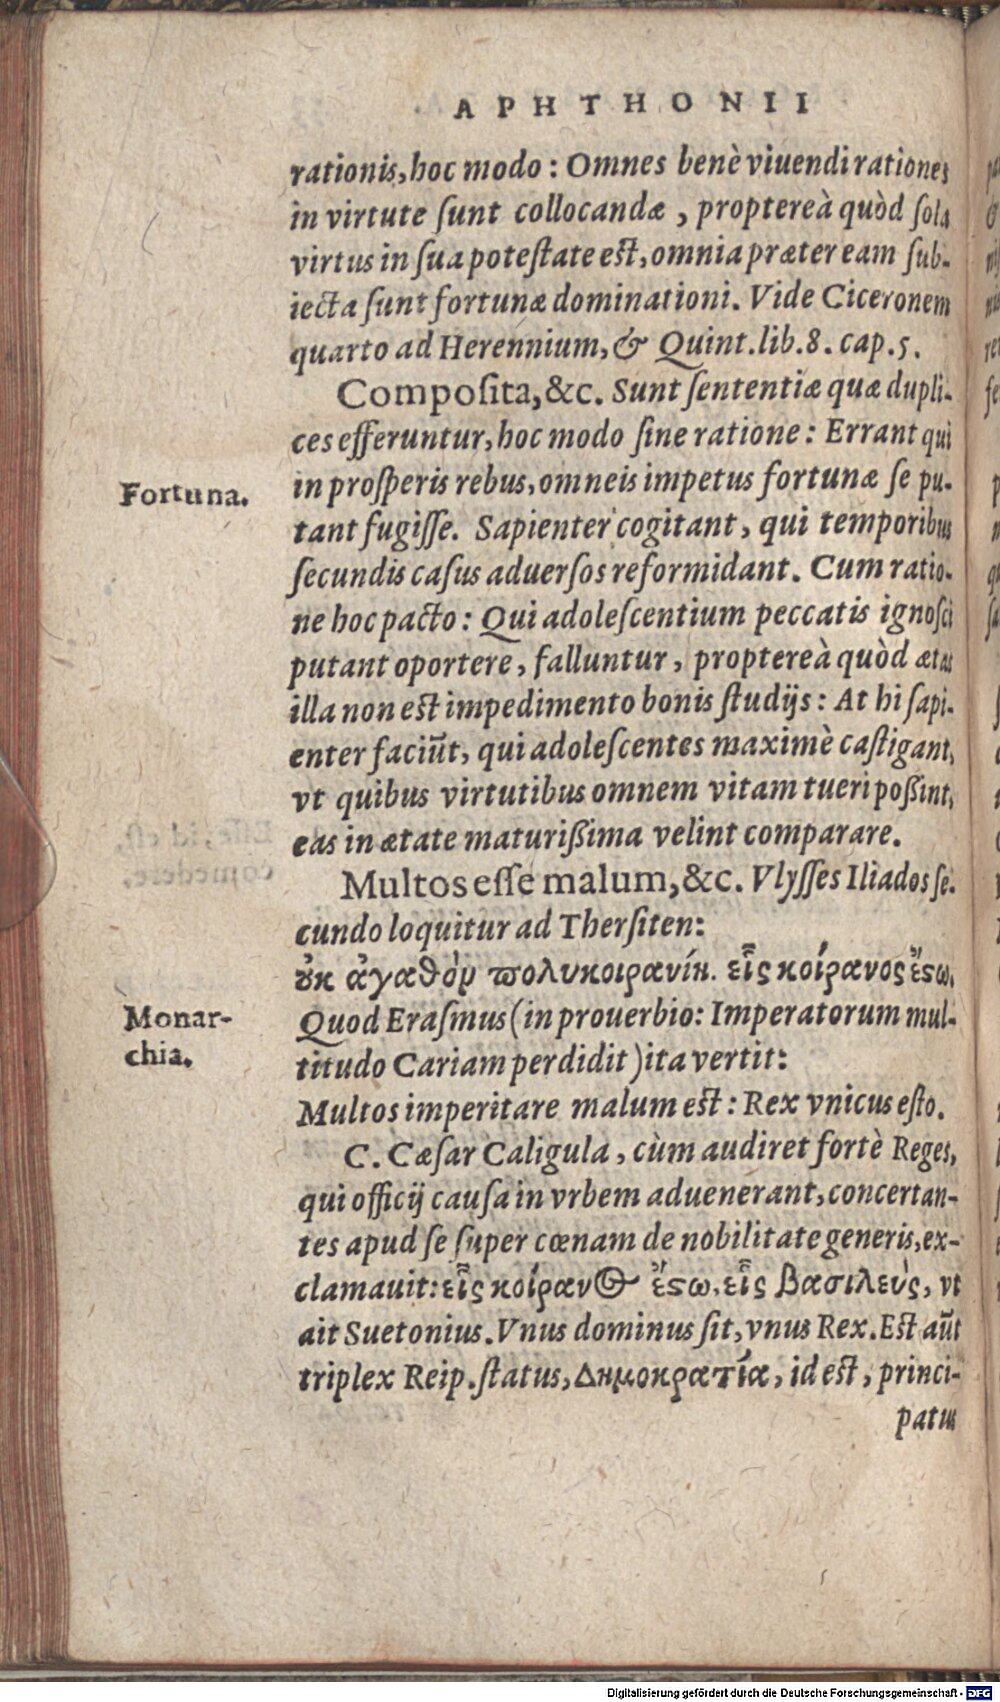 APHTHONII
rationis, hoc modo: Omnes benè viuendi rationes
in virtute ſunt collocandæ, proptereà quòd ſola
virtus in ſua poteſtate eſt, omnia præter eam ſub-
iecta ſunt fortunæ dominationi. Vide Ciceronem
quarto ad Herennium, & Quint. lib. 8. cap. 5.
Compoſita, &c. Sunt ſententiæ quæ dupli-
ces efferuntur, hoc modo ſine ratione: Errant qui
Fortuna.
in proſperis rebus, omneis impetus fortunæ ſe pu-
tant fugiſſe. Sapienter cogitant, qui temporibus
ſecundis caſus aduerſos reformidant. Cum ratio-
ne hoc pacto: Qui adoleſcentium peccatis ignoſci
putant oportere, falluntur, proptereà quòd ætas
illa non eſt impedimento bonis ſtudijs: At hi ſapi-
enter faciũt, qui adoleſcentes maximè caſtigant,
vt quibus virtutibus omnem vitam tueri poßint,
eas in ætate maturißima velint comparare.
Multos eſſe malum, &c. Vlyſſes Iliados ſe-
cundo loquitur ad Therſiten:
ȣκ ἀγαθὸν πολυκοιρανίη. εἷς κοίρανος ἔϛω,
Monar-
chia.
Quod Eraſmus (in prouerbio: Imperatorum mul-
titudo Cariam perdidit) ita vertit:
Multos imperitare malum eſt: Rex vnicus eſto.
C. Cæſar Caligula, cùm audiret fortè Reges,
qui officij cauſa in vrbem aduenerant, concertan-
tes apud ſe ſuper cœnam de nobilitate generis, ex-
clamauit: εἷς κοίρανος ἔϛω, εἷς βασιλεὺς, vt
ait Suetonius. Vnus dominus ſit, vnus Rex. Eſt aũt
triplex Reip. ſtatus, Δημοκρατία, id eſt, princi-
patus
Digitalisierung gefördert durch die Deutsche Forschungsgemeinschaft - DFG